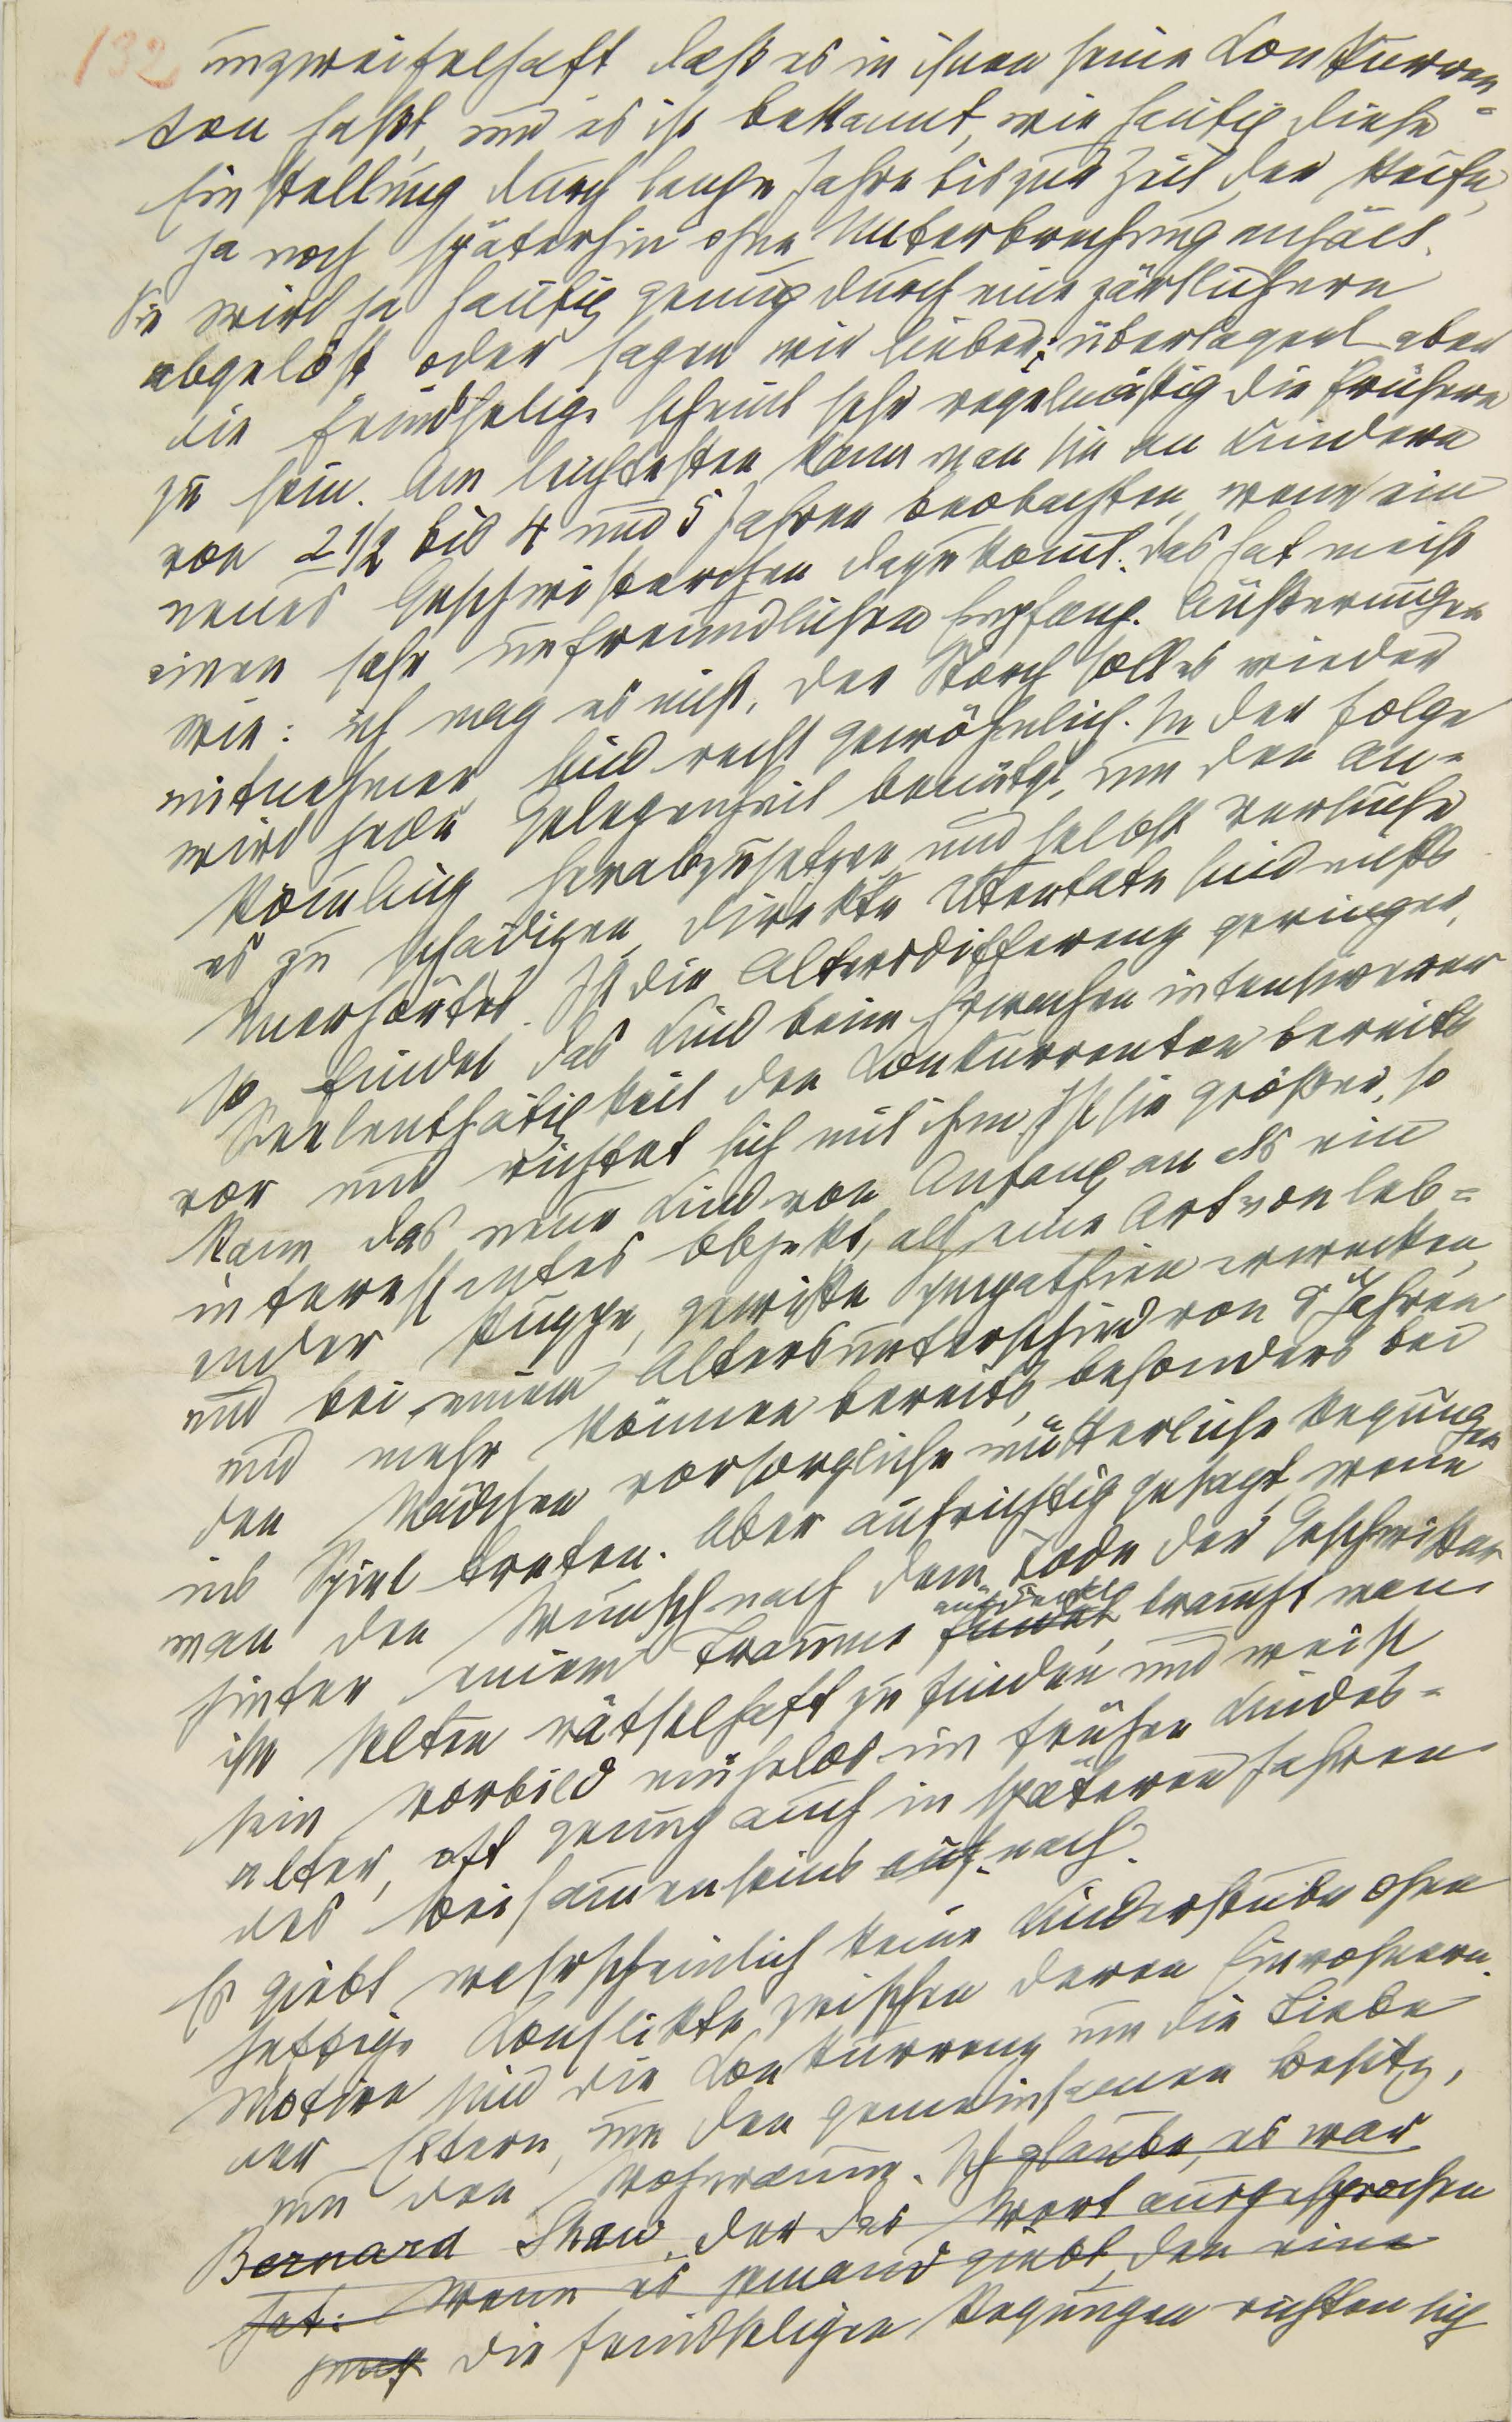 132
unzweifelhaft daß es in ihnen seine Konkurren-
ten haßt, und es ist bekannt, wie häufig diese
Einstellung durch lange Jahre bis zur Zeit der Reife,
ja noch späterhin ohne Unterbrechung anhält.
Sie wird ja häufig genug durch eine zärtlichere
abgelöst oder sagen wir lieber: überlagert aber
die feindselige scheint sehr regelmäßig die frühere
zu sein. Am leichtesten kann man sie an Kindern
von 2 1/2 bis 4 und 5 Jahren beobachten, wenn ein
neues Geschwisterchen dazukomt. Das hat meist
einen sehr unfreundlichen Empfang. Äußerungen
wie: ich mag es nicht, der Storch soll es wieder
mitnehmen sind recht gewöhnlich. In der Folge
wird jede Gelegenheit benützt, um den An-
kömling herabzusetzen und selbst Versuche
es zu schädigen, direkte Attentate sind nichts
Unerhörtes. Ist die Altersdifferenz geringer,
so findet das Kind beim Erwachen intensiverer
Seelenthätigkeit den Konkurrenten bereits
vor und richtet sich mit ihm, Ist sie größer, so
kann das neue Kind von Anfang an als ein
interessantes Objekt, als eine Art von leb-
ender Puppe, gewisse Sympathien erwecken,
und bei einem Altersunterschied von 8 Jahren
und mehr können bereits, besonders bei
den Mädchen vorsorgliche mütterliche Regungen
ins Spiel treten. Aber aufrichtig gesagt, wenn
man den Wunsch nach dem Tode der Geschwister
hinter einem Traume findet aufdeckt, braucht man
ihn selten rätselhaft zu finden und weist
sein Vorbild mühelos im frühen Kindes-
alter, oft genug auch in späteren Jahren
des Beisammenseins auf. nach.
Es giebt wahrscheinlich keine Kinderstube ohne
heftige Konflikte zwischen deren Einwohnern.
Motive sind die Konkurrenz um die Liebe
der Eltern, um den gemeinsamen Besitz,
um den Wohnraum. Ich glaube, es war
Bernard Shaw, der das Wort ausgesprochen
hat: Wenn es jemand giebt, den eine
jung die feindseligen Regungen richten sich